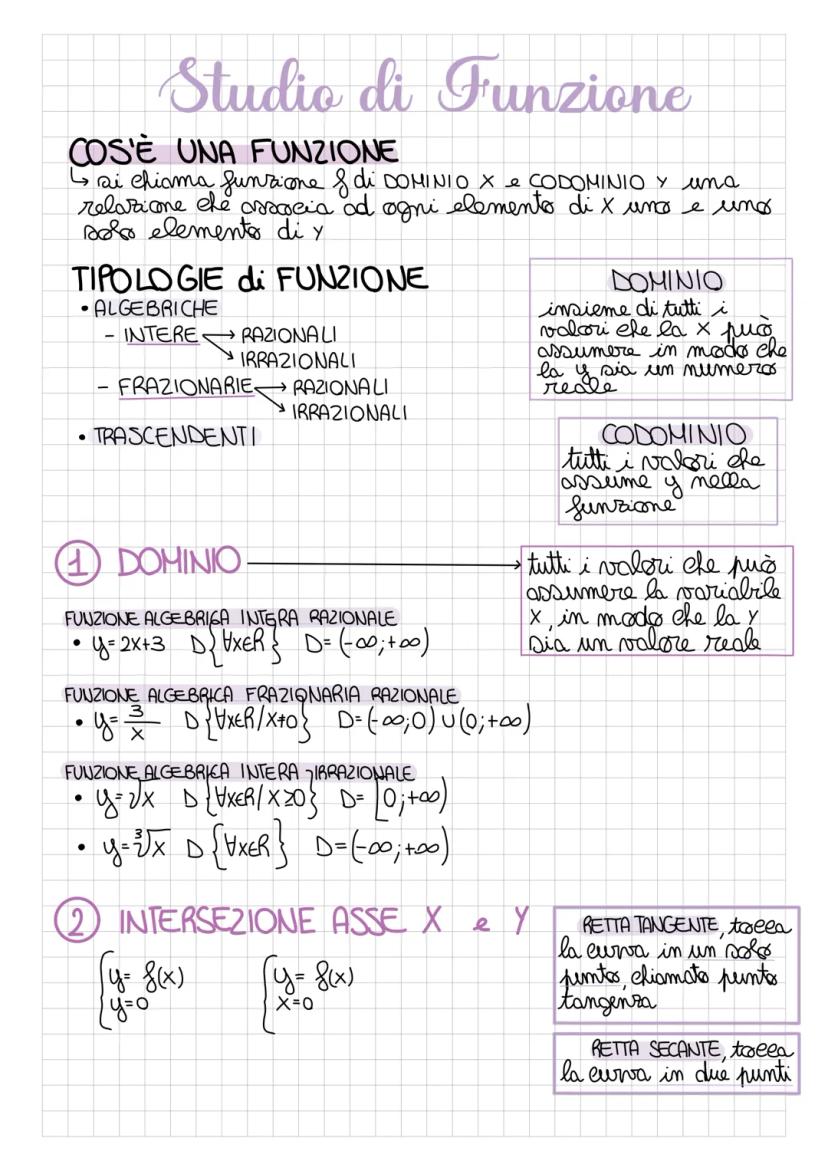 Studio di Funzione
COS'È UNA FUNZIONE
↳ si chiama funzione f di DOMINIO X e CODOMINIO Y una
relazione che associa ad ogni elemento di X uno e uno
solo elemento di Y
TIPOLOGIE di FUNZIONE
• ALGEBRICHE
- INTERE → RAZIONALI
→ IRRAZIONALI
- FRAZIONARIE → RAZIONALI
→ IRRAZIONALI
• TRASCENDENTI
DOMINIO
insieme di tutti i
valori che la x può
assumere in modo che
la y sia un numero
reale
CODOMINIO
tutti i valori che
assume y nella
funzione
1 DOMINIO →
tutti i valori che può
assumere la variabile
X, in modo che la Y
sia un valore reale
FUNZIONE ALGEBRICA INTERA RAZIONALE
• y=2x+3 D{∀x∈R} D=(-∞;+∞)
FUNZIONE ALGEBRICA FRAZIONARIA RAZIONALE
• y=3/x D{∀x∈R/x≠0} D=(-∞;0)∪(0;+∞)
FUNZIONE ALGEBRICA INTERA IRRAZIONALE
• y=√x D{∀x∈R/x≥0} D=[0;+∞)
• y=∛x D{∀x∈R} D=(-∞;+∞)
2 INTERSEZIONE ASSE X e Y
{y=f(x)
y=0
{y=f(x)
x=0
RETTA TANGENTE, tocca
la curva in un solo
punto, chiamato punto
tangenza
RETTA SECANTE, tocca
la curva in due punti